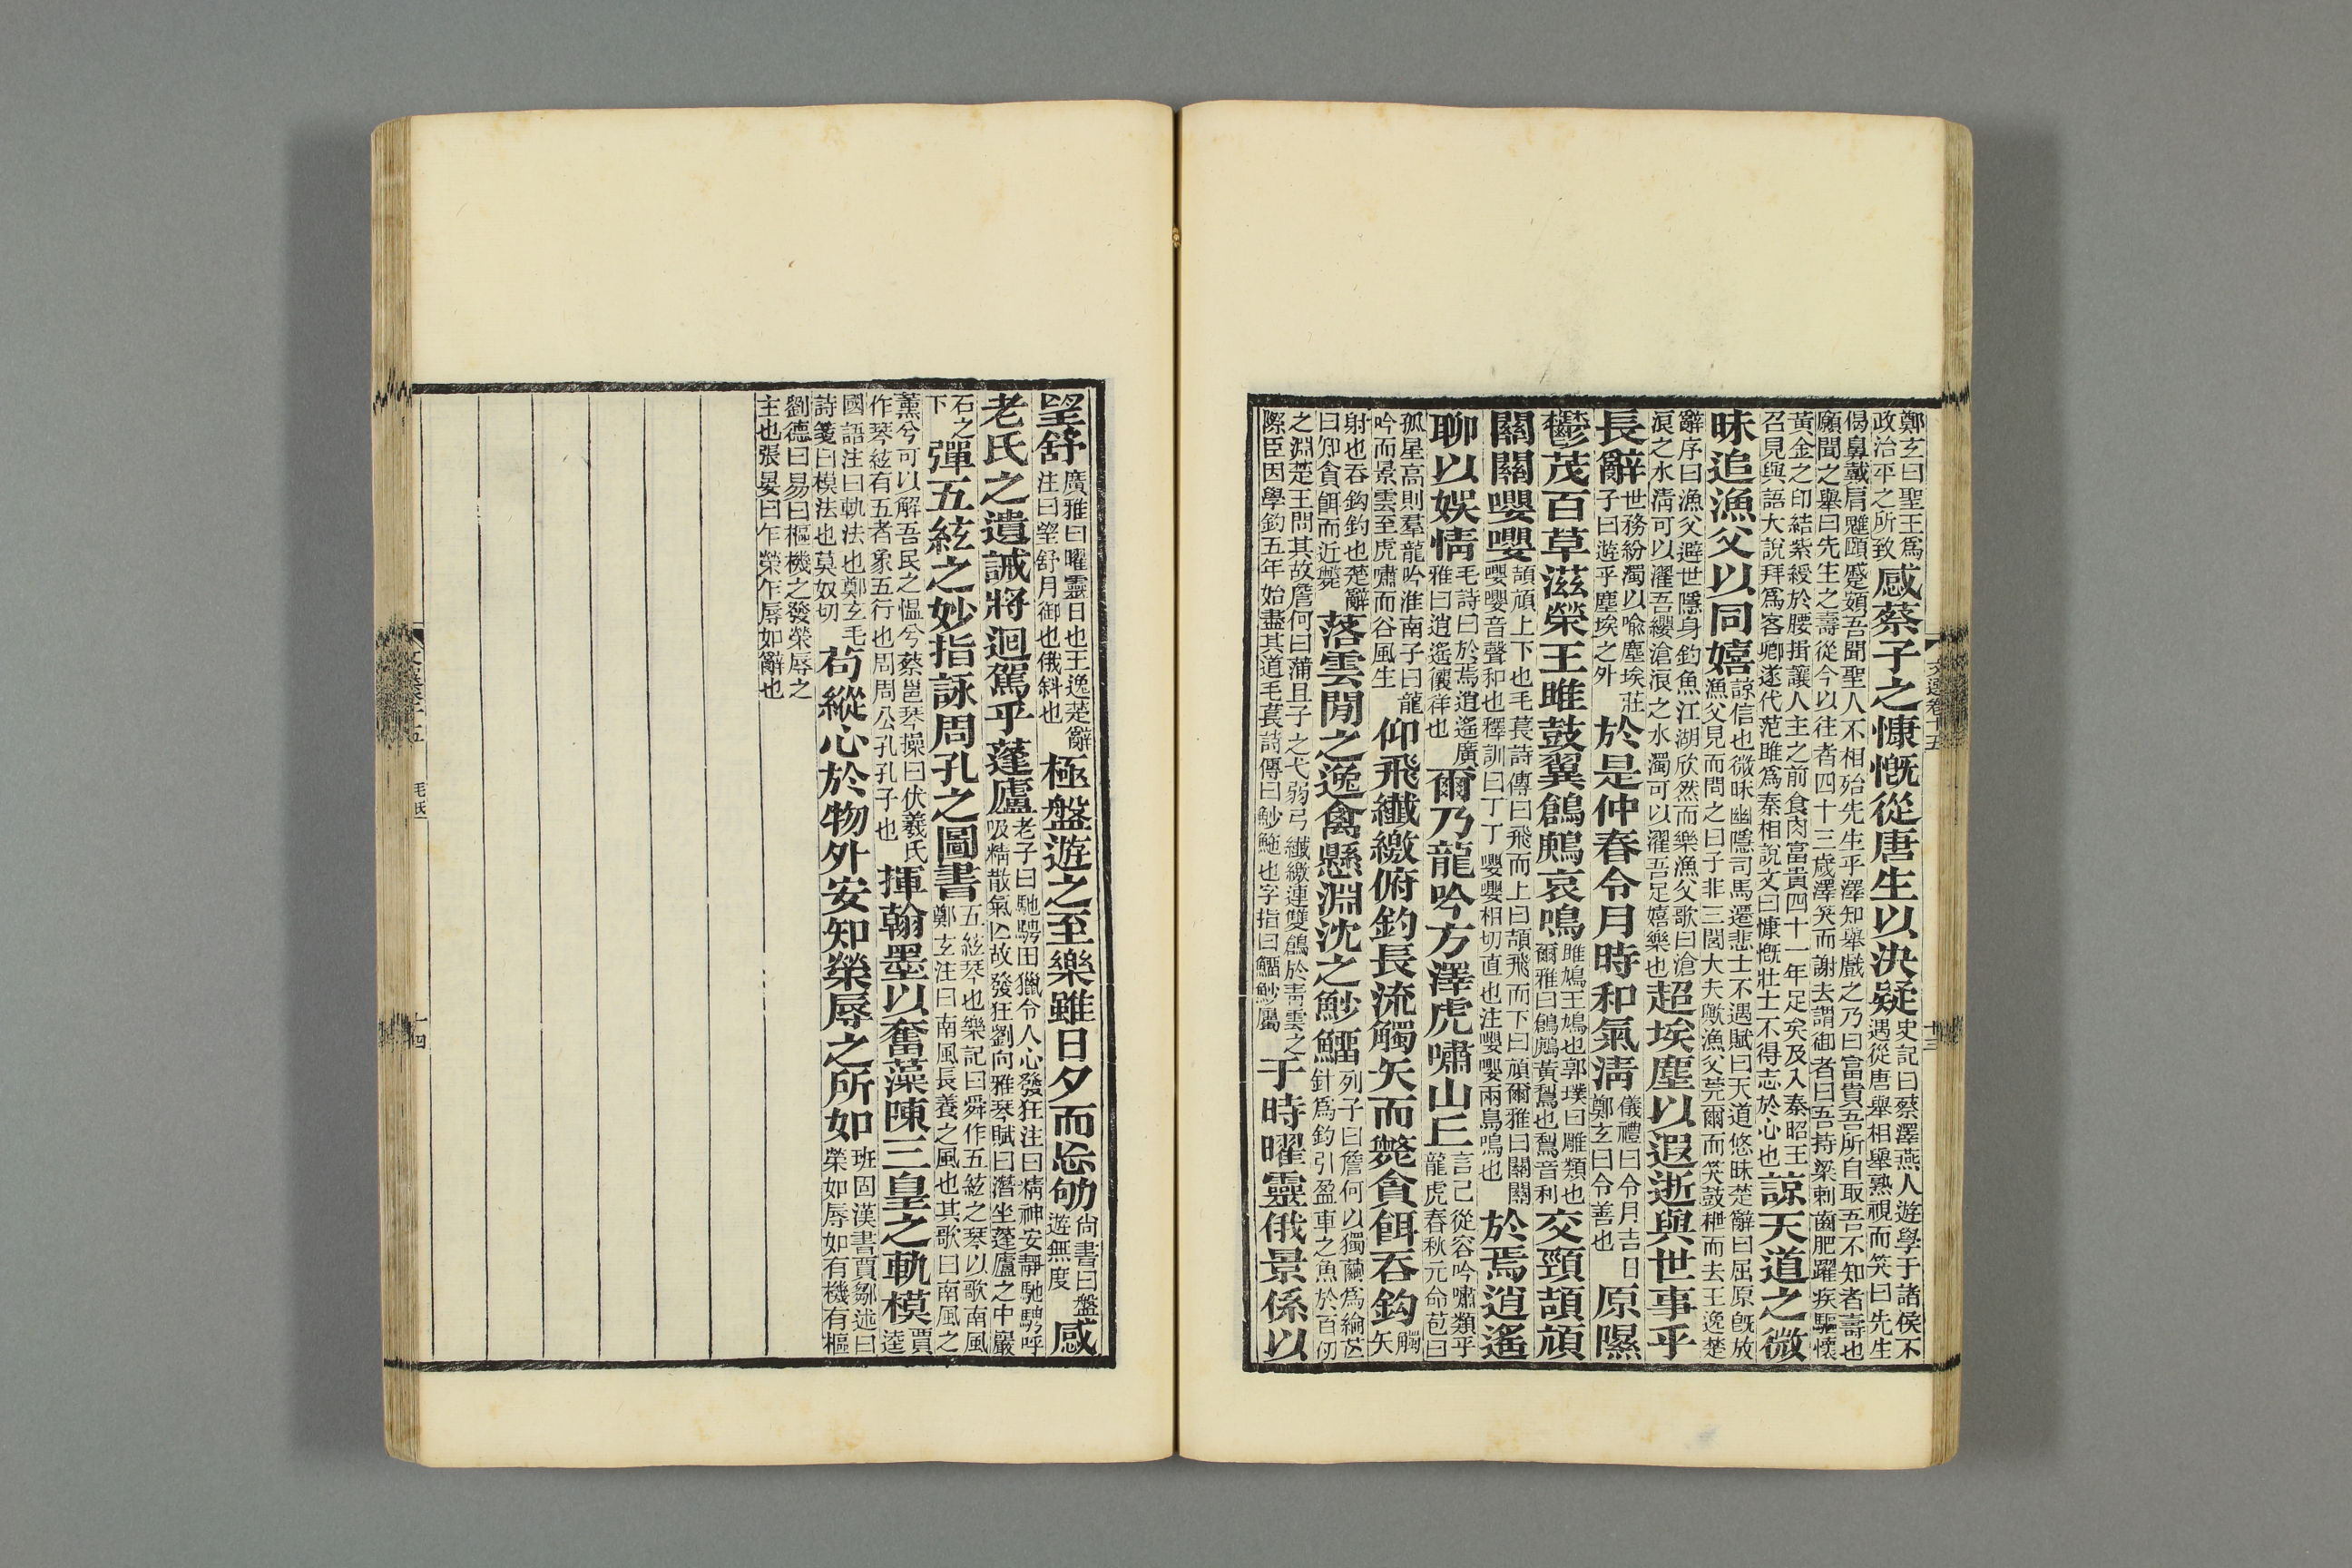 鄭玄曰聖王爲
政治平之所致
感蔡子之慷慨從唐生以決疑
史記曰蔡澤燕人遊學于諸侯不
遇從唐舉相舉熟視而笑曰先生
偈鼻戴肩魋頤蹙頞吾聞聖人不相殆先生乎澤知舉戲之乃曰富貴吾所自取吾不知者壽也
願聞之舉曰先生之壽從今以往者四十三歲澤笑而謝去謂御者曰吾持粱刺齒肥躍疾驅懷
黃金之印結紫綬於腰揖讓人主之前食肉富貴四十一年足矣及入秦昭王
召見與語大說拜爲客卿遂代范雎爲秦相說文曰慷慨壯士不得志於心也
諒天道之微
昧追漁父以同嬉
諒信也微昧幽隱司馬遷悲士不遇賦曰天道悠昧楚辭曰屈原旣放
漁父見而問之曰子非三閭大夫歟漁父莞爾而笑鼓枻而去王逸楚
辭序曰漁父避世隱身釣魚江湖欣然而樂漁父歌曰滄
浪之水淸可以濯吾纓滄浪之水濁可以濯吾足嬉樂也
超埃塵以遐逝與世事乎
長辭
世務紛濁以喻塵埃莊
子曰遊乎塵埃之外
於是仲春令月時和氣淸
儀禮曰令月吉日
鄭玄曰令善也
原隰
鬱茂百草滋榮王雎鼓翼鶬鶊哀鳴
雎鳩王鳩也郭璞曰雕類也
爾雅曰鶬鶊黃鵹也鵹音利
交頸頡頏
關關嚶嚶
頡頏上下也毛萇詩傳曰飛而上曰頡飛而下曰頏爾雅曰關關
嚶嚶音聲和也釋訓曰丁丁嚶嚶相切直也注嚶嚶兩鳥鳴也
於焉逍遙
聊以娛情
毛詩曰於焉逍遙廣
雅曰逍遙儴徉也
爾乃龍吟方澤虎嘯山丘
言己從容吟嘯類乎
龍虎春秋元命苞曰
孤星高則羣龍吟淮南子曰龍
吟而景雲至虎嘯而谷風生
仰飛纖繳俯釣長流觸矢而斃貪餌吞鈎
觸
矢
射也吞鈎釣也楚辭
曰仰貪餌而近斃
落雲閒之逸禽懸淵沈之魦鰡
列子曰詹何以獨繭爲綸芒
針爲釣引盈車之魚於百仞
之淵楚王問其故詹何曰蒲且子之弋弱弓纖繳連雙鶬於靑雲之
際臣因學釣五年始盡其道毛萇詩傳曰魦鮀也字指曰鰡魦屬
于時曜靈俄景係以
文選卷十五
十三
望舒
廣雅曰曜靈日也王逸楚辭
注曰望舒月御也俄斜也
極盤遊之至樂雖日夕而忘劬
尙書曰盤
遊無度
感
老氏之遺誡將迴駕乎蓬廬
老子曰馳騁田獵令人心發狂注曰精神安靜馳騁呼
吸精散氣亾故發狂劉向雅琴賦曰潛坐蓬廬之中巖
石之
下
彈五絃之妙指詠周孔之圖書
五絃琴也樂記曰舜作五絃之琴以歌南風
鄭玄注曰南風長養之風也其歌曰南風之
薰兮可以解吾民之慍兮蔡邕琴操曰伏羲氏
作琴絃有五者象五行也周周公孔孔子也
揮翰墨以奮藻陳三皇之軌模
賈
逵
國語注曰軌法也鄭玄毛
詩箋曰模法也莫奴切
苟縱心於物外安知榮辱之所如
班固漢書賈鄒述曰
榮如辱如有機有樞
劉德曰易曰樞機之發榮辱之
主也張晏曰乍榮乍辱如辭也
十四